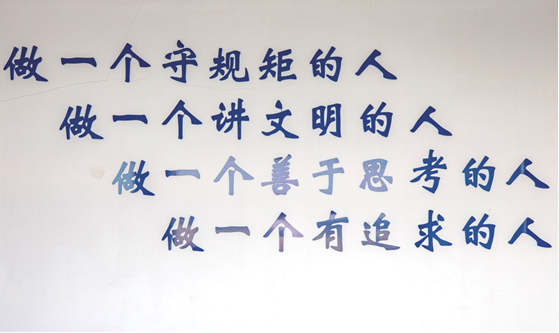 做一个守规矩的人
做一个讲文明的人
做一个善于思考的人
做一个有追求的人